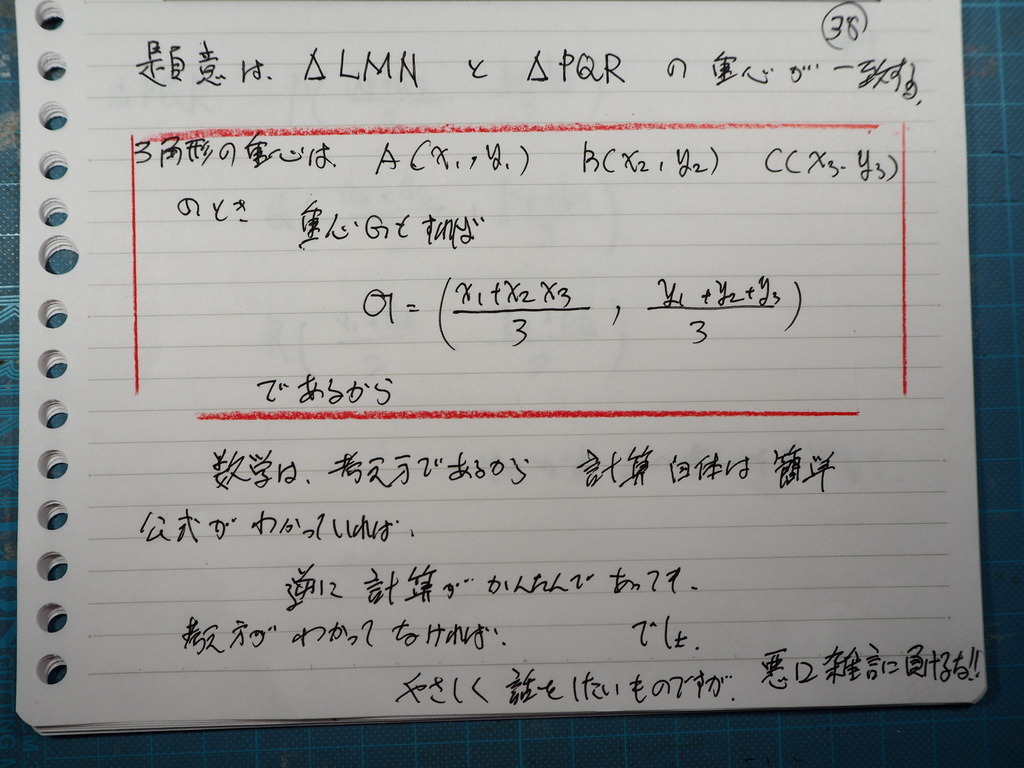 38
題意は、△LMN と △PQR の 重心が 一致する。
3角形の重心は、 A(x₁, y₁) B(x₂, y₂) C(x₃. y₃)
のとき 重心Gとすれば
G = ( x₁+x₂ x₃ / 3 , y₁+y₂+y₃ / 3 )
であるから
数学は、考え方であるから 計算自体は 簡単
公式が わかっていれば、
逆に 計算が かんたんで あっても、
考え方が わかって なければ、 でしょ。
やさしく 話をしたいものですが、 悪口雑言に負けるな!!